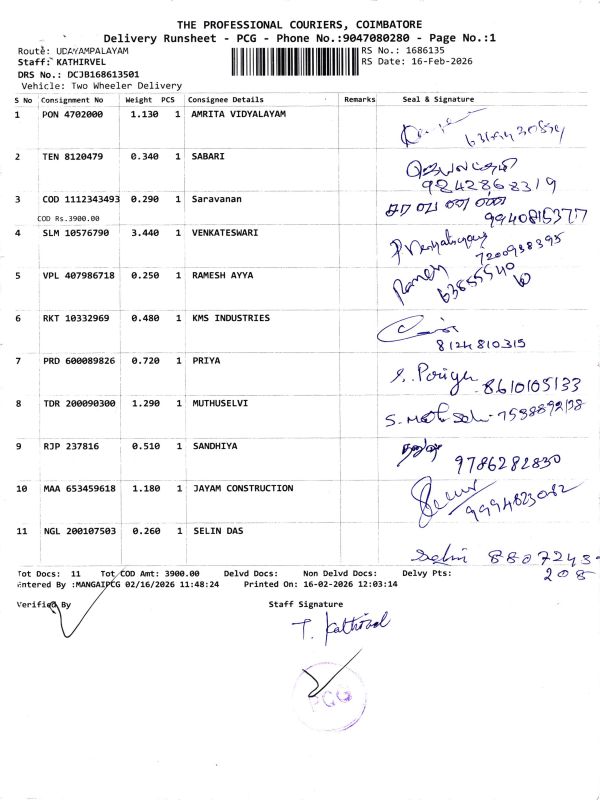 THE PROFESSIONAL COURIERS, COIMBATORE
Delivery Runsheet - PCG - Phone No.:9047080280 - Page No.:1
Route: UDAYAMPALAYAM
RS No.: 1686135
Staff: KATHIRVEL
RS Date: 16-Feb-2026
DRS No.: DCJB168613501
Vehicle: Two Wheeler Delivery
S No Consignment No Weight PCS Consignee Details Remarks Seal & Signature
1 PON 4702000 1.130 1 AMRITA VIDYALAYAM
2 TEN 8120479 0.340 1 SABARI
9842868319
3 COD 1112343493 0.290 1 Saravanan சரவணன்
COD Rs.3900.00
9940815377
4 SLM 10576790 3.440 1 VENKATESWARI
7200938395
5 VPL 407986718 0.250 1 RAMESH AYYA Ramesh
6 RKT 10332969 0.480 1 KMS INDUSTRIES
8124810315
7 PRD 600089826 0.720 1 PRIYA
8610105133
8 TDR 200090300 1.290 1 MUTHUSELVI
9 RJP 237816 0.510 1 SANDHIYA
9786282830
10 MAA 653459618 1.180 1 JAYAM CONSTRUCTION
9994823082
11 NGL 200107503 0.260 1 SELIN DAS
Selin 8807243
208
Tot Docs: 11 Tot COD Amt: 3900.00 Delvd Docs: Non Delvd Docs: Delvy Pts:
Entered By :MANGAIPCG 02/16/2026 11:48:24 Printed On: 16-02-2026 12:03:14
Verified By Staff Signature
T. Kathirvel
PCG